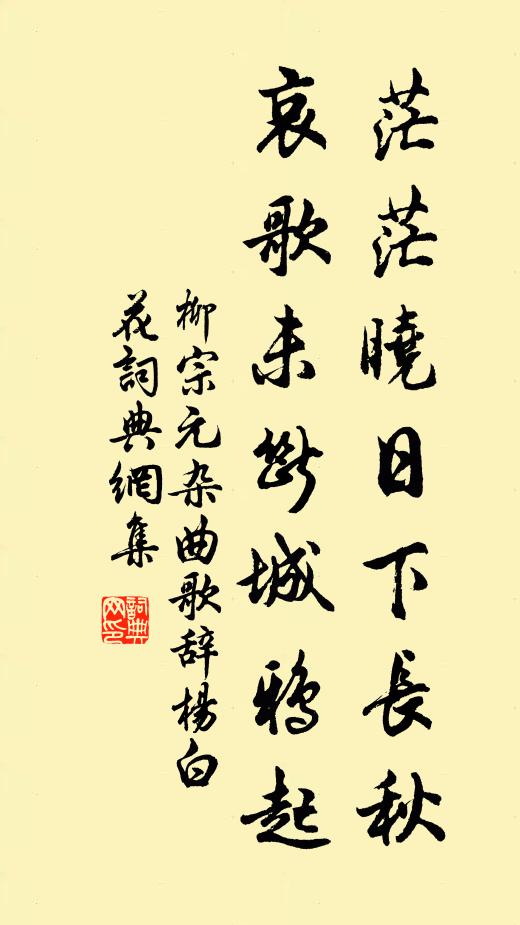 茫茫曉日下長秋
哀歌未斷城鴉起
柳宗元杂曲歌辞楊白
花詞典網集
詞典
网印